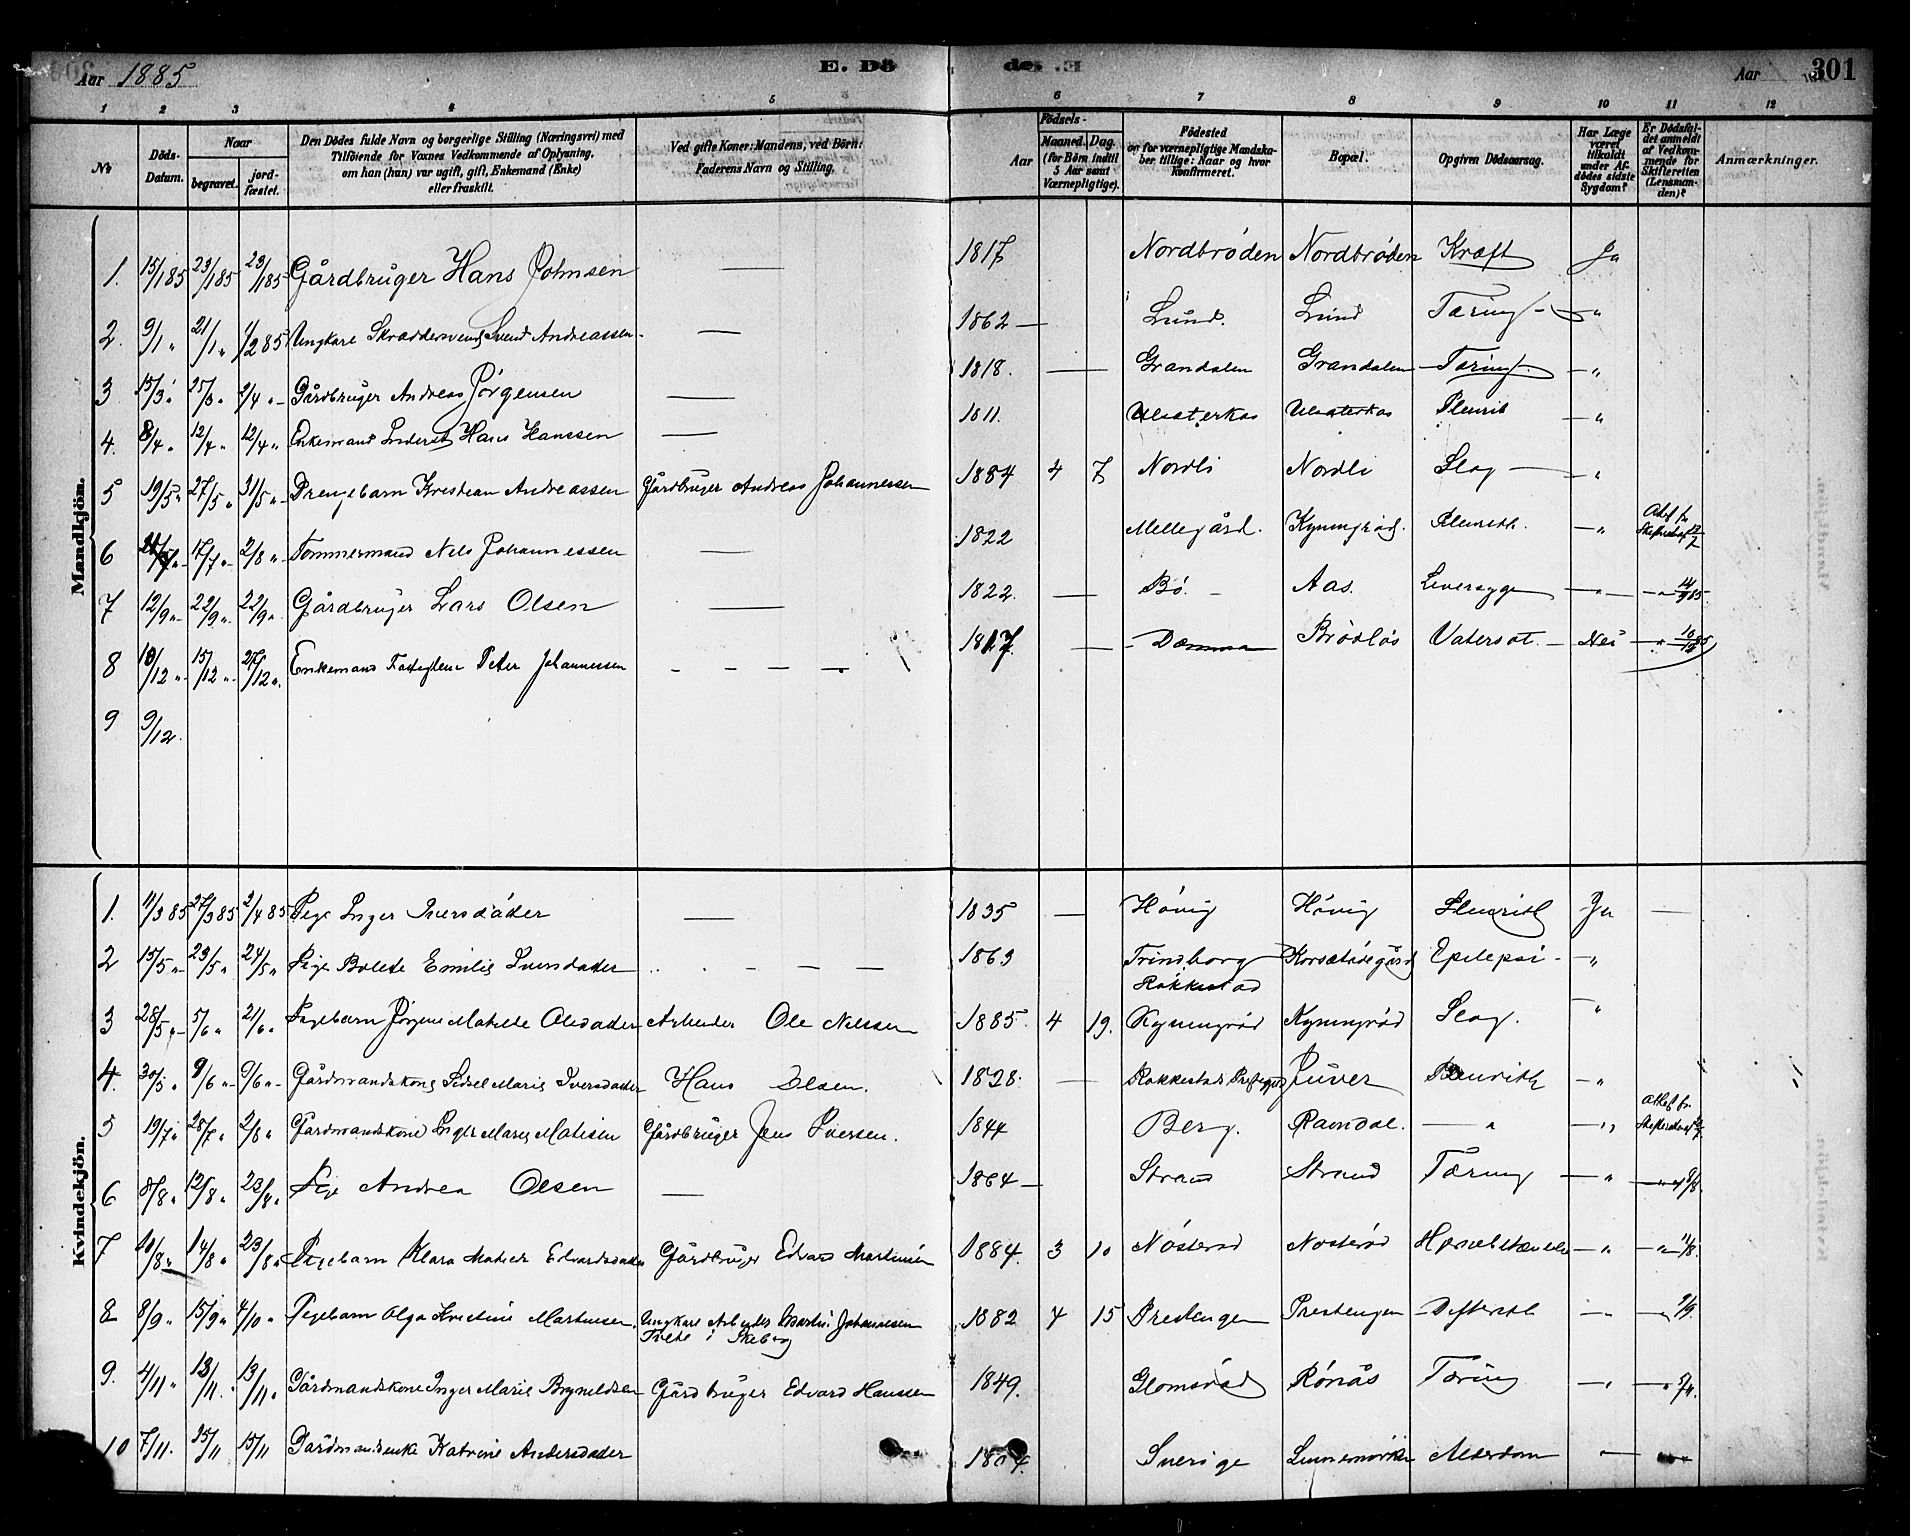 Aar 1885
E. Dö
de. E
Aar 301
1 2 3 4 5 6 7 8 9 10 11 12
No
Döds-Datum.
Naar
begravet.
jord-fæstet.
Den Dödes fulde Navn og borgerlige Stilling (Næringsvei) med
Tilföiende for Voxnes Vedkommende af Oplysning,
om han (hun) var ugift, gift, Enkemand (Enke)
eller fraskilt.
Ved gifte Koner: Mandens, ved Börn:
Faderens Navn og Stilling.
Födsels-
Aar
Maaned. Dag.
(for Börn indtil
5 Aar samt
Værnepligtige).
Födested
og for værnepligtige Mandska-
ber tillige: Naar og hvor
konfirmeret.
Bopæl.
Opgiven Dödsaarsag.
Har Læge
været
tilkaldt
under Af-
dödes sidste
Sygdom?
Er Dödsfal-
det anmeldt
af Vedkom-
mende for
Skifteretten
(Lensman-
den)?
Anmærkninger.
Mandkjön.
1. 15/1 85 23/1 85 23/1 85 Gårdbruger Hans Johnsen — 1817 Nordbrøden Nordbrøden Kræft Ja
2. 9/1 " 21/1 " 1/2 85 Ungkarl Skræddersvend Svend Andreassen — 1862 — Lund. Lund Tæring — "
3 15/3 " 25/3 " 2/4 " Gårdbruger Andreas Jørgensen — 1818. — Grandalen Grandalen Tæring — "
4. 8/4 " 12/4 " 12/4 " Enkemand Inderst Hans Hanssen — 1811. Pleurit — "
5 19/5 " 27/5 " 31/5 " Drengebarn Kristian Andreassen Gårdbruger Andreas Johannessen 1884 4 7 Nordli Nordli Slag — "
6 17/7 " 2/8 " Tømmermand Nils Johannessen — 1822 Mellegård. Kynungrød. Pleurith. — "
7 12/9 " 22/9 " 22/9 " Gårdbruger Lars Olsen — 1822. — Bø. Aas. Leversyge — " — " 14/9 85.
8 10/12 " 15/12 " 27/12 " Enkemand Peter Johannessen — 1817. — Brødløs Vatersot. — Nei — "
9 9/12.
Kvindekjön.
1. 11/3 85 27/3 85 2/4 85 Pige Inger Iversdatter — 1835 — Høvig Høvig Pleurith Ja —
2 15/5 " 23/5 " 24/5 " Pige Bolete Emilie Iversdatter — 1863 Trindborg Korsætødegård Epilepsi — "
Rakkestad
3 28/5 " 5/6 " 21/6 " Pigebarn Jørgine Matilde Olsdatter Arbeider Ole Nilssen 1885. 4 19. Kynungrød Kynungrød Slag. "
4. 30/5 " 9/6 " 9/6 " Gårdmandskone Sidsel Marie Iversdatter Hans Olsen. 1828. — Rakkestads Prestegjeld Juver Pleurith — "
5 19/7 " 28/7 " 2/8 " Gårdmandskone Inger Marie Matisen Gårdbruger Jens Iversen. 1844 Berg. Ramdal. — " — "
6 8/8 " 12/8 " 23/8 " Pige Andrea Olsen — 1864 — Strand Strand Tæring — " — " 9/8.
7 10/8 " 14/8 " 23/8 " Pigebarn Klara Matilde Edvardsdatter Gårdbruger Edvard Martinsen 1884. 3 10 Nøsterød Nøsterød — " — " 11/8.
8 8/9 " 15/9 " 4/10 " Pigebarn Olga Kristine Martinsen. Ungkarl Arbeider Martin Johannesen 1882 4 15 Prestengen Prestengen Difterith — — 9/9.
Tvete i Skeberg
9. 4/11 " 13/11 " 13/11 " Gårdmandskone Inger Marie Brynildsen Gårdbruger Edvard Hanssen 1849. Glomsrød Rønås Tæring — " — " 5/11.
10 7/11. 15/11 15/11 Gårdmandsenke Katrine Andersdatter Sverige Alderdom — —